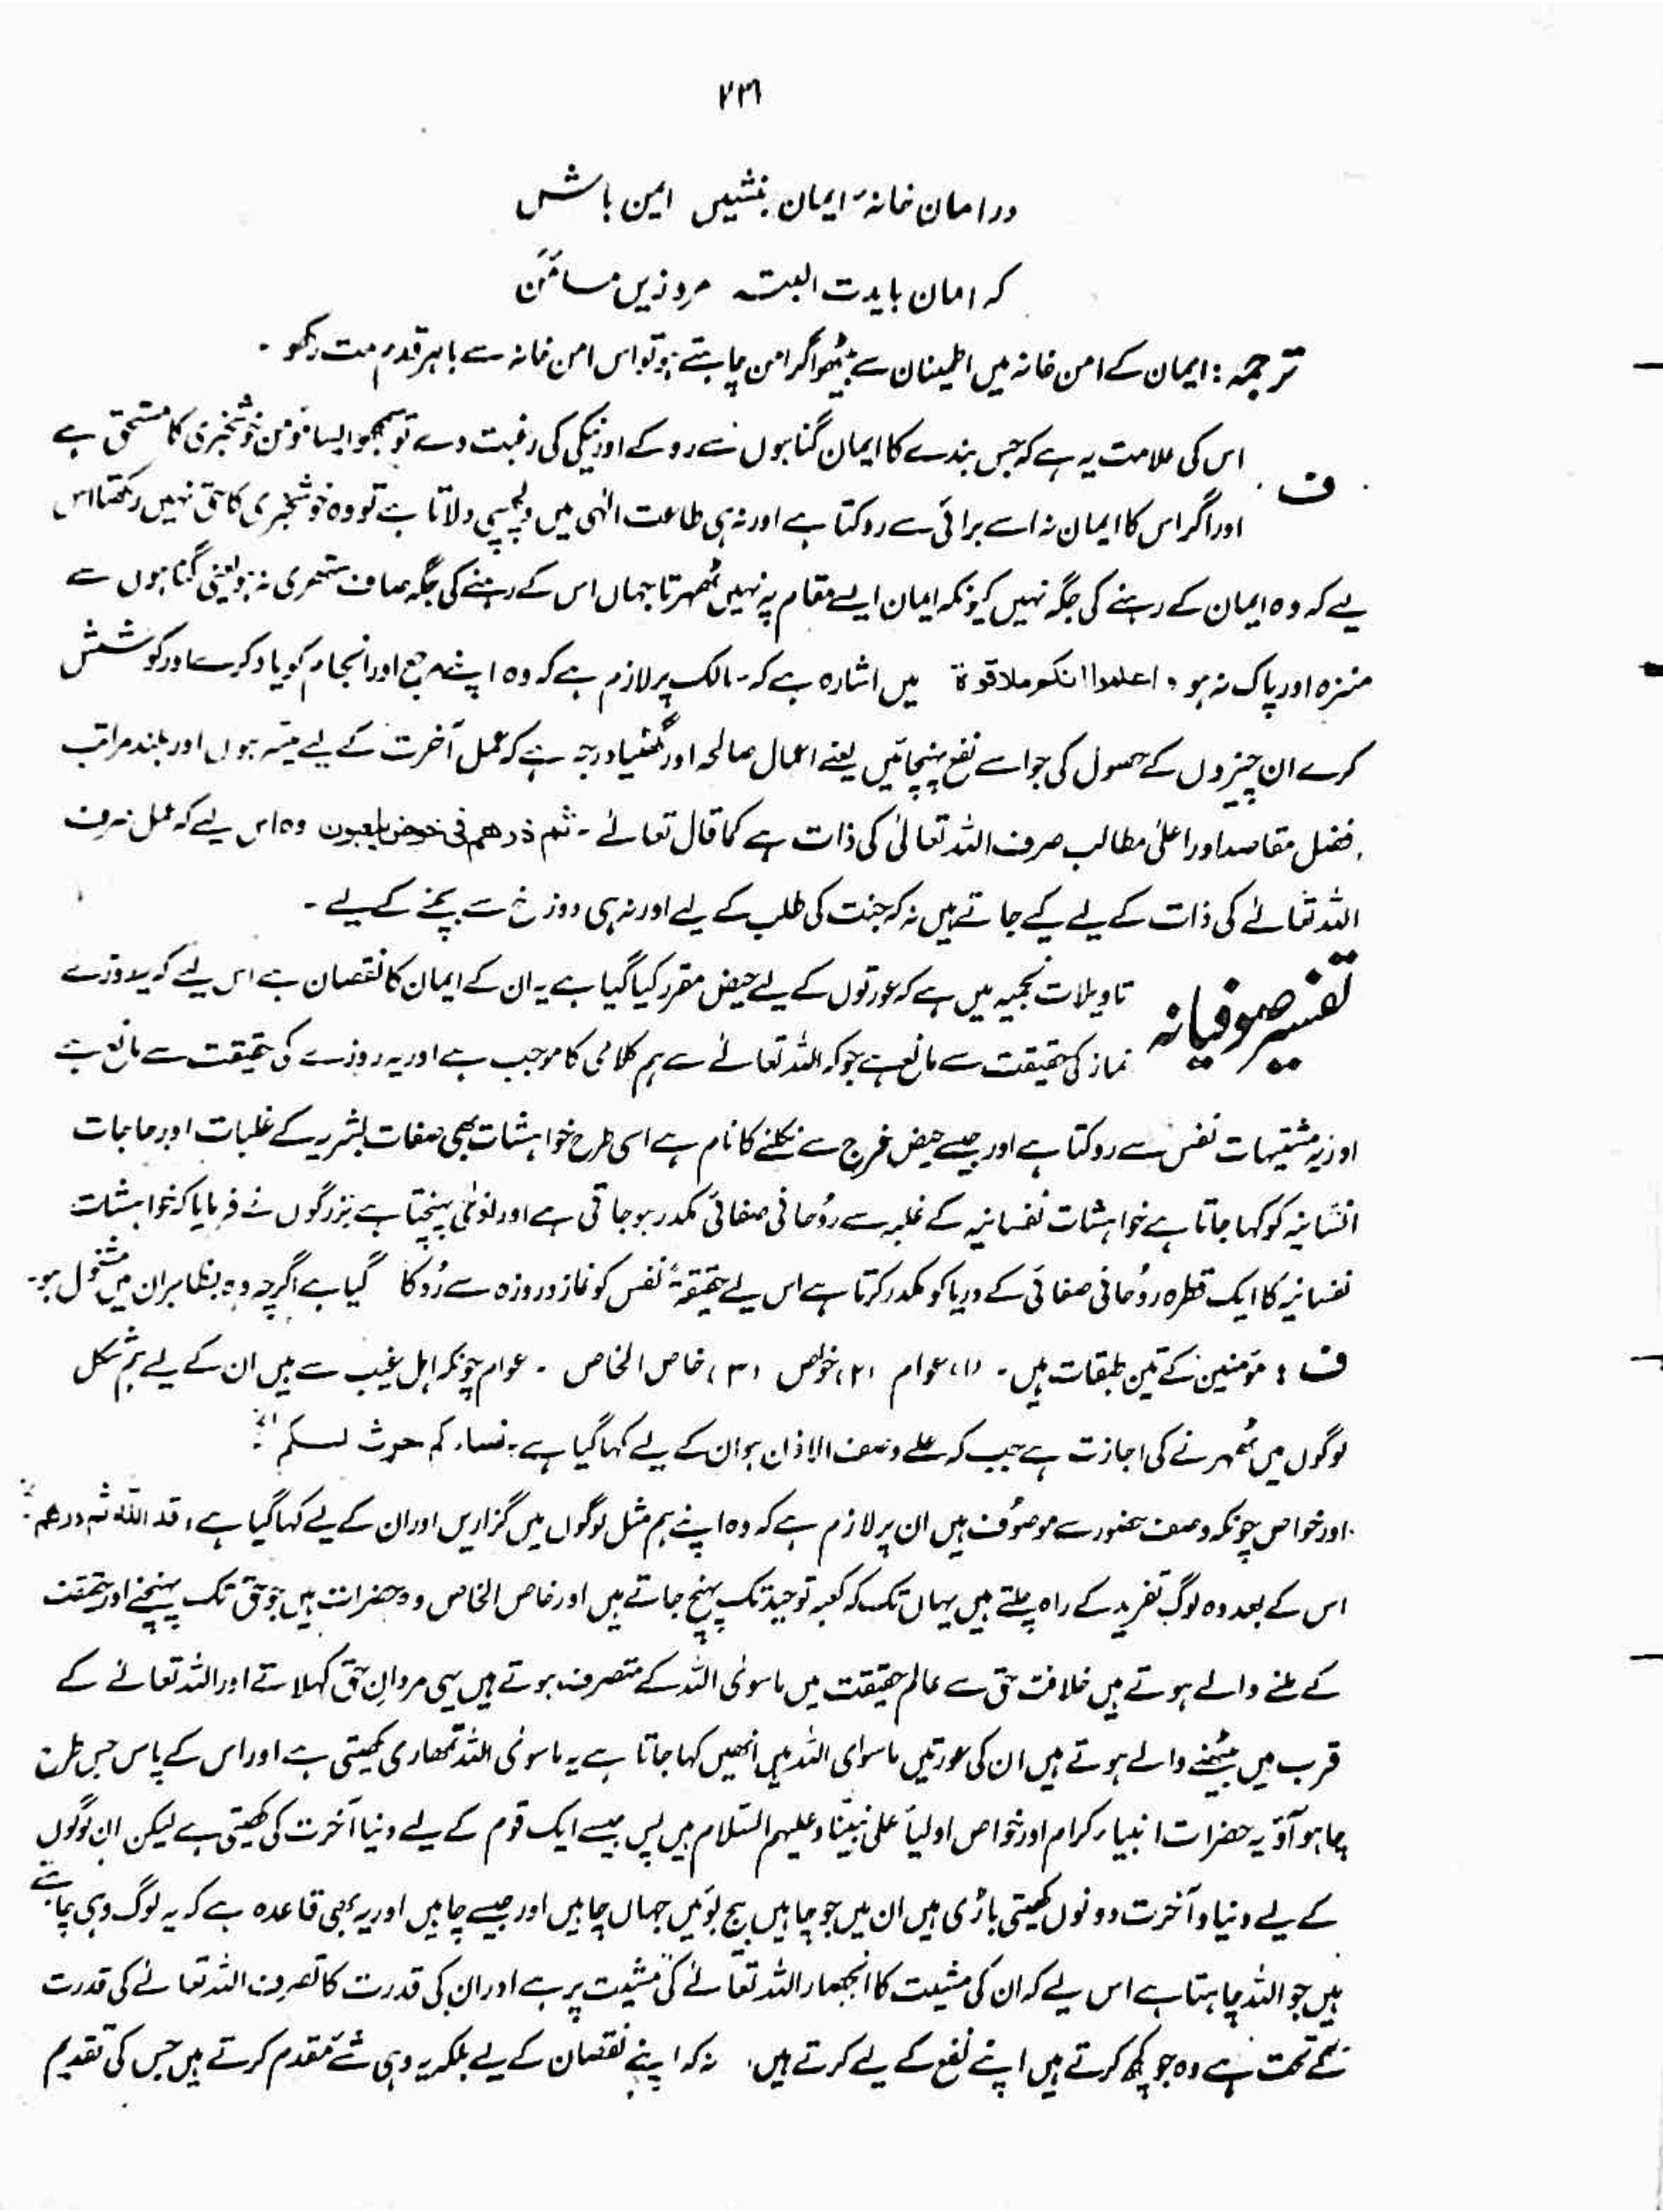 ۲۳۶
در امان خانۂ ایمان بنشیں امین باش
کہ امان بایدت البتہ مرو زیں مسامن
ترجمہ: ایمان کے امن خانہ میں اطمینان سے بیٹھو اگر امن چاہتے ہو تو اس امن خانہ سے باہر قدم مت رکھو۔
ف۔ اس کی علامت یہ ہے کہ جس بندے کا ایمان گناہوں سے روکے اور نیکی کی رغبت دے تو سمجھو ایسا مومن خوشخبری کا مستحق ہے
اور اگر اس کا ایمان نہ اسے برائی سے روکتا ہے اور نہ ہی طاعت الٰہی میں دلچسپی دلاتا ہے تو وہ خوشخبری کا حق نہیں رکھتا اس
لیے کہ وہ ایمان کے رہنے کی جگہ نہیں کیونکہ ایمان ایسے مقام پر نہیں ٹھہرتا جہاں اس کے رہنے کی جگہ صاف ستھری نہ ہو یعنی گناہوں سے
منزہ اور پاک نہ ہو۔ اعلموا انکم ملاقوۃ میں اشارہ ہے کہ سالک پر لازم ہے کہ وہ اپنے مرجع اور انجام کو یاد کرے اور کوشش
کرے ان چیزوں کے حصول کی جو اسے نفع پہنچائیں یعنے اعمال صالحہ اور گھٹیا درجہ ہے کہ عمل آخرت کے لیے میسر ہوں اور بلند مراتب
افضل مقاصد اور اعلیٰ مطالب صرف اللہ تعالیٰ کی ذات ہے کما قال تعالے۔ ثم ذرهم فی خوض یلعبون وہ اس لیے کہ عمل صرف
اللہ تعالے کی ذات کے لیے کیے جاتے ہیں نہ کہ جنت کی طلب کے لیے اور نہ ہی دوزخ سے بچنے کے لیے۔
تفسیر صوفیانہ تاویلات نجمیہ میں ہے کہ عورتوں کے لیے حیض مقرر کیا گیا ہے یہ ان کے ایمان کا نقصان ہے اس لیے کہ یہ روزے
نماز کی حقیقت سے مانع ہے جو کہ اللہ تعالے سے ہم کلامی کا موجب ہے اور یہ روزے کی حقیقت سے مانع ہے
اور یہ مشتہیات نفس سے روکتا ہے اور جیسے حیض فرج سے نکلنے کا نام ہے اسی طرح خواہشات بھی صفات بشریہ کے غلبات اور حاجات
انسانیہ کو کہا جاتا ہے خواہشات نفسانیہ کے غلبہ سے رُوحانی صفائی مکدر ہو جاتی ہے اور پہنچتا ہے بزرگوں نے فرمایا کہ خواہشات
نفسانیہ کا ایک قطرہ رُوحانی صفائی کے دریا کو مکدر کرتا ہے اس لیے حقیقۃً نفس کو نماز و روزہ سے رُوکا گیا ہے اگرچہ وہ بظاہر ان میں مشغول ہو۔
ف: مومنین کے تین طبقات ہیں۔ (۱) عوام (۲) خواص (۳) خاص الخاص۔ عوام چونکہ اہل غیب سے ہیں ان کے لیے ہم شکل
لوگوں میں ٹھہرنے کی اجازت ہے جب کہ علے وصف الاذن ہو ان کے لیے کہا گیا ہے۔ نساءکم حرث لکم
اور خواص چونکہ وصف حضور سے موصُوف ہیں ان پر لازم ہے کہ وہ اپنے ہم مثل لوگوں میں گزاریں اور ان کے لیے کہا گیا ہے، قد اللّٰہ ثم ذرهم
اس کے بعد وہ لوگ تفرید کے راہ چلتے ہیں یہاں تک کہ کعبہ توحید تک پہنچ جاتے ہیں اور خاص الخاص وہ حضرات ہیں جو حق تک پہنچنے اور حقیقت
کے ملنے والے ہوتے ہیں خلافت حق سے عالم حقیقت میں ماسوٰی اللہ کے متصرف ہوتے ہیں یہی مردانِ حق کہلاتے اور اللہ تعالے کے
قرب میں بیٹھنے والے ہوتے ہیں ان کی عورتیں ماسوای اللہ ہیں انھیں کہا جاتا ہے یہ ماسوٰی اللہ تمھاری کھیتی ہے اور اس کے پاس جس طرح
چاہو آؤ یہ حضرات انبیاء کرام اور خواص اولیأ علی نبیّنا و علیہم السّلام ہیں پس جیسے ایک قوم کے لیے دنیا آخرت کی کھیتی ہے لیکن ان لوگوں
کے لیے دنیا و آخرت دونوں کھیتی باڑی ہیں ان میں جو چاہیں بیج بوئیں جہاں چاہیں اور جیسے چاہیں اور یہ بھی قاعدہ ہے کہ یہ لوگ وہی چاہتے
ہیں جو اللہ چاہتا ہے اس لیے کہ ان کی مشیت کا انحصار اللہ تعالے کی مشیت پر ہے اور ان کی قدرت کا تصرف اللہ تعالے کی قدرت
کے تحت ہے وہ جو کچھ کرتے ہیں اپنے نفع کے لیے کرتے ہیں، نہ کہ اپنے نقصان کے لیے بلکہ یہ وہی شے مقدم کرتے ہیں جس کی تقدیم